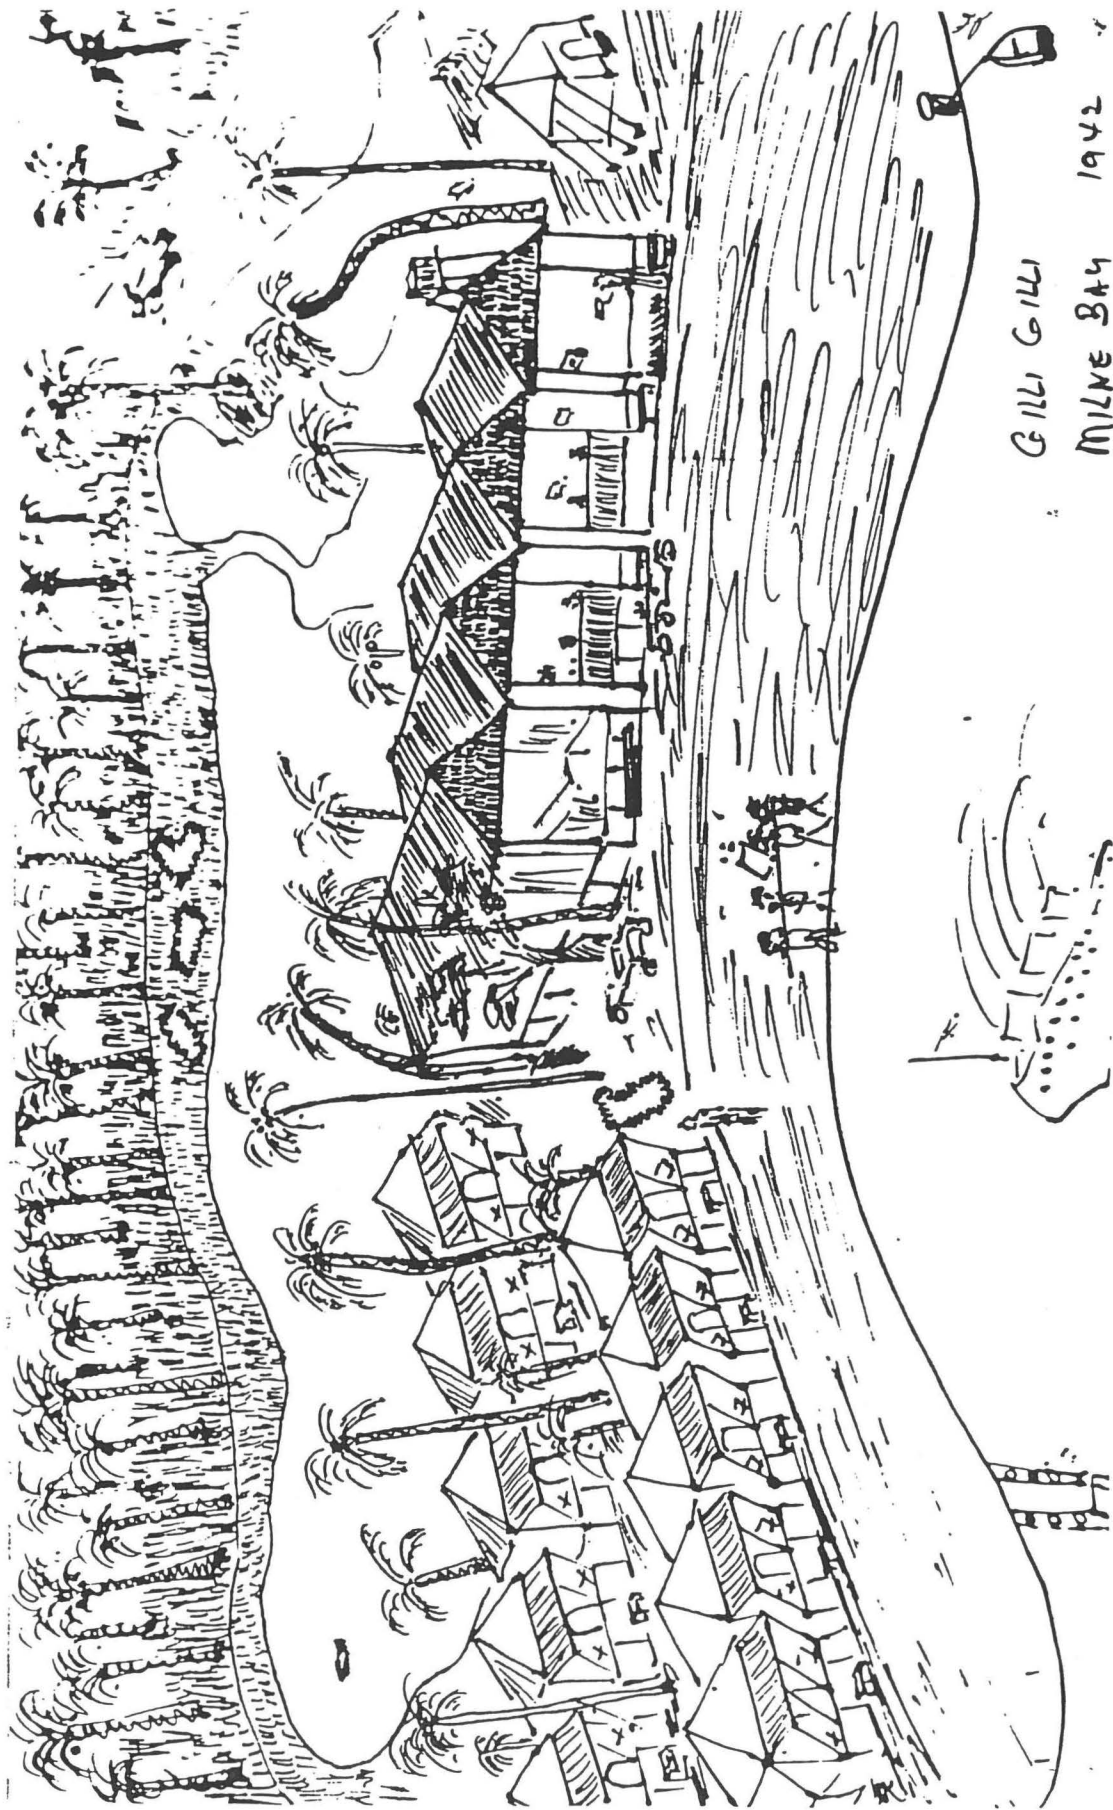 GILLI GILLI
MILNE BAY 1942